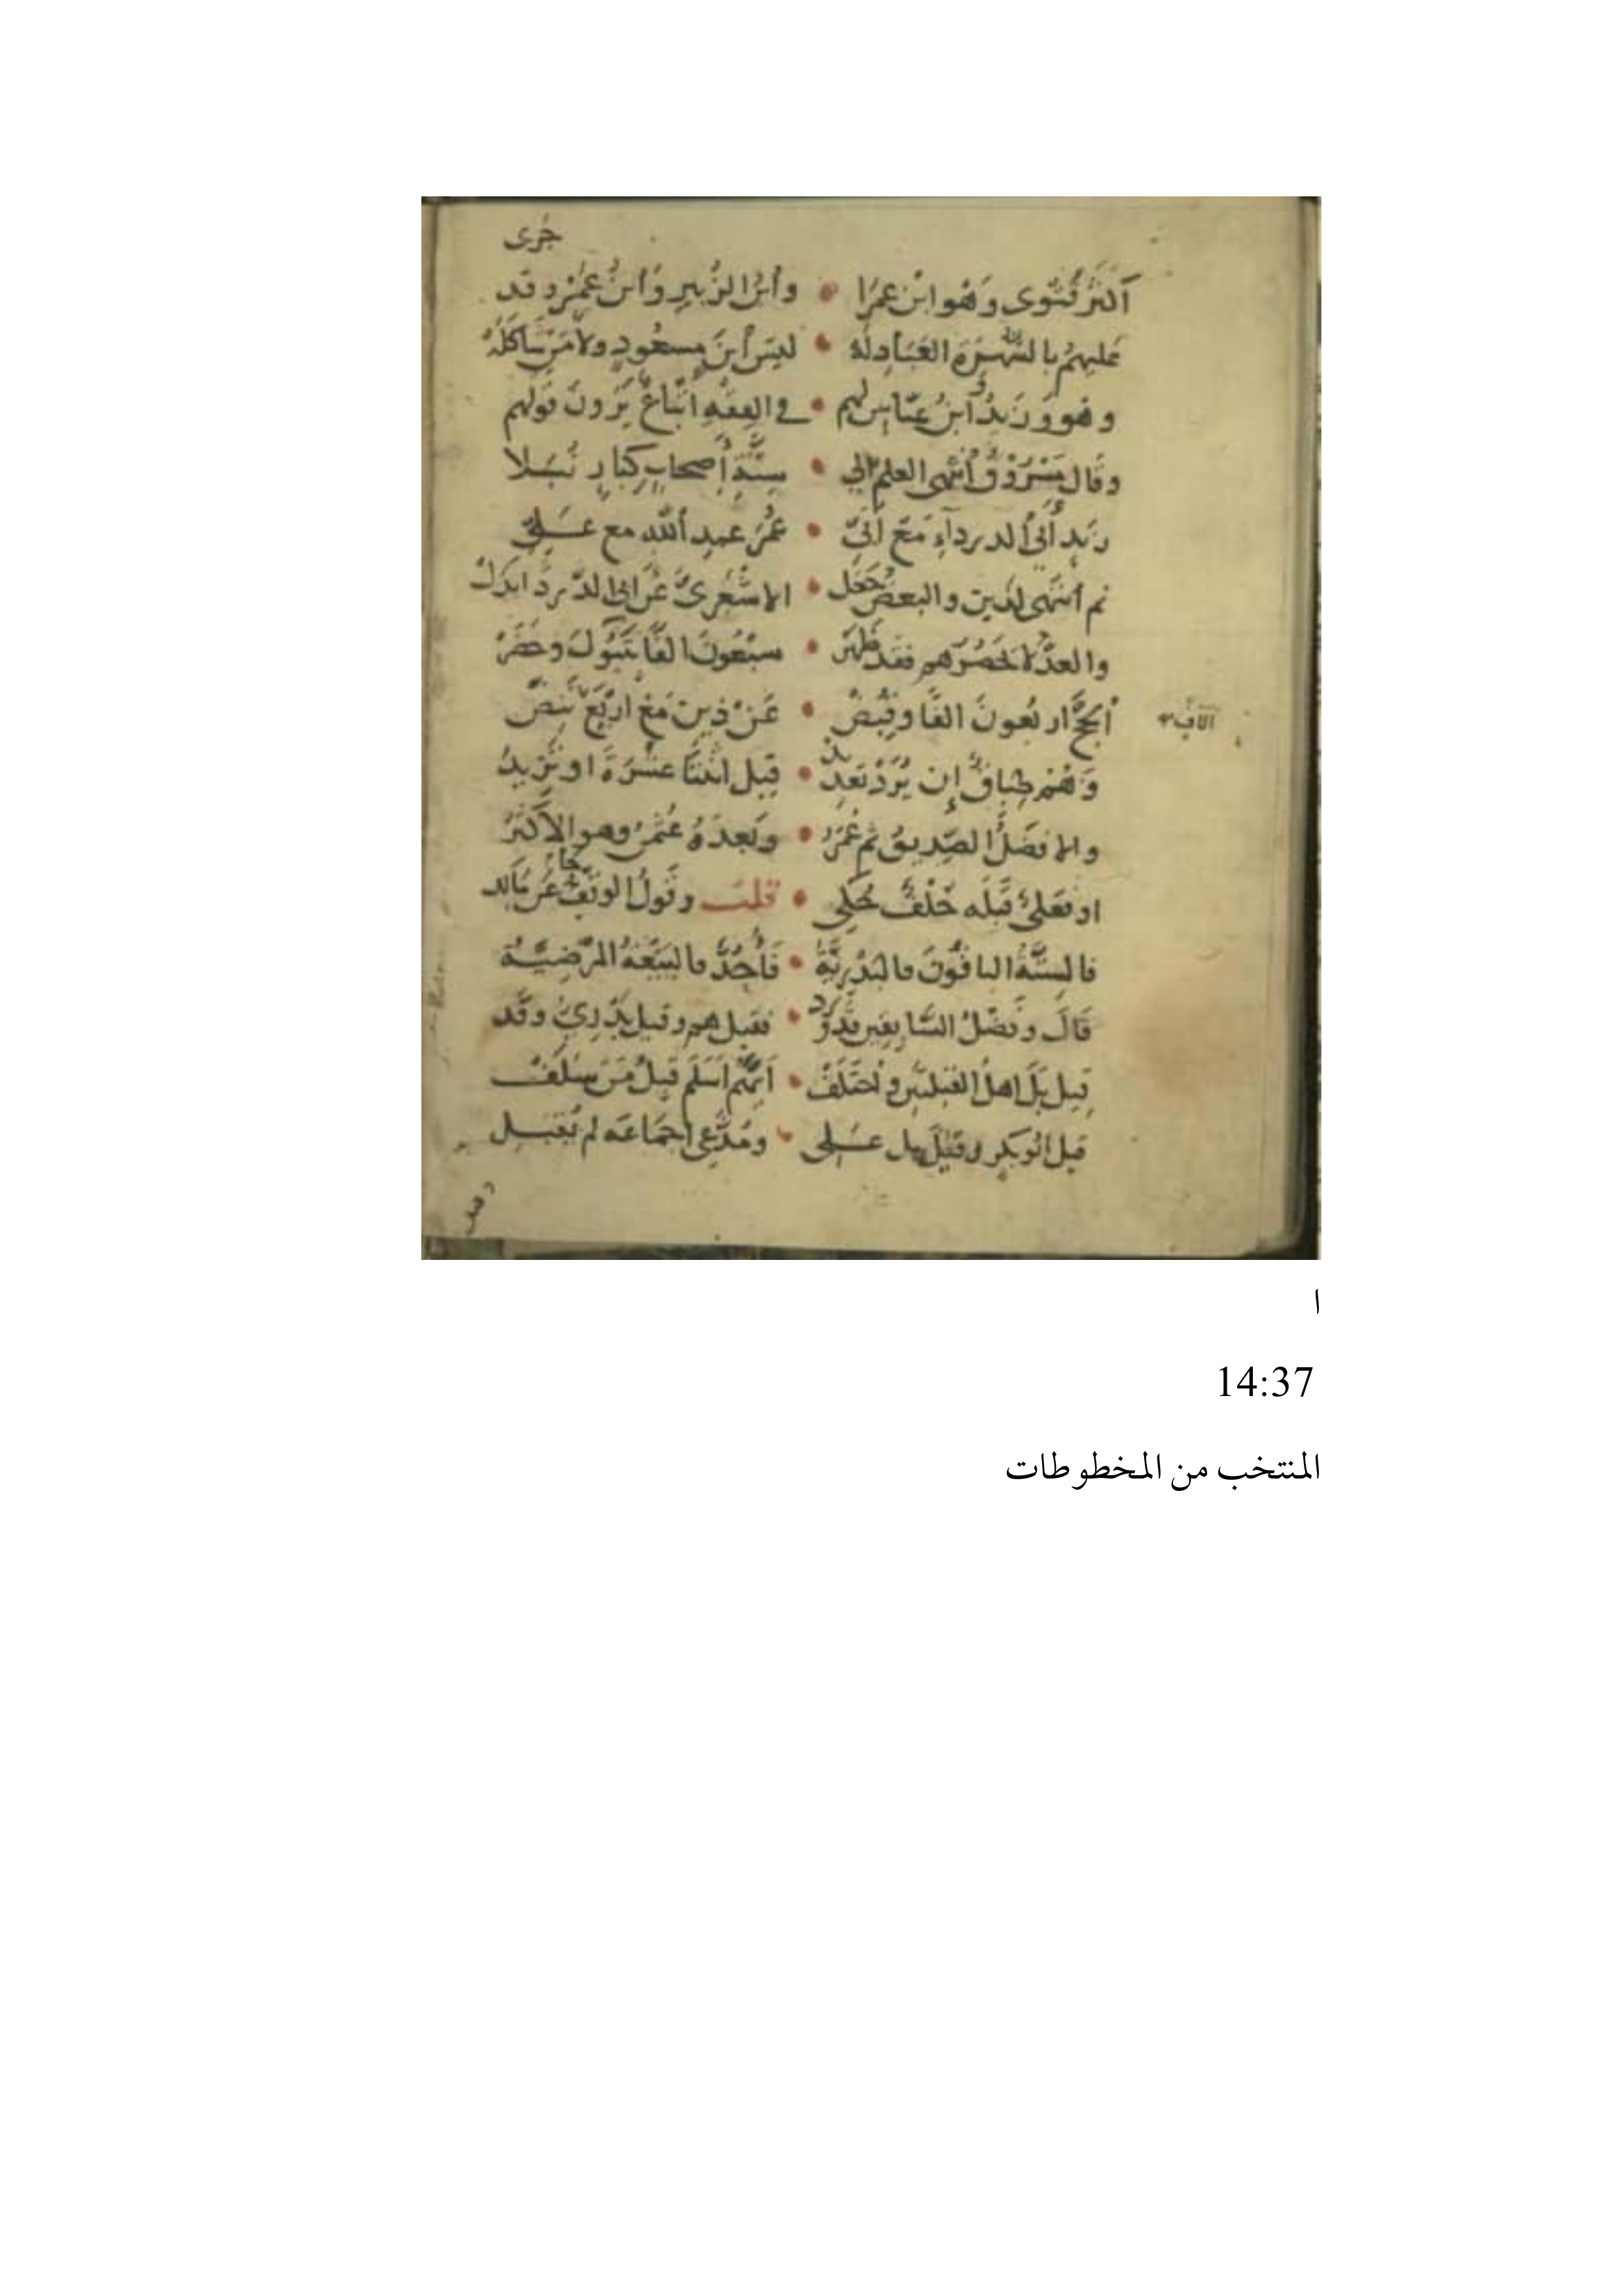 جرى
أكثر فتوى وهو ابن عمرا • وابن الزبير وابن عمرو قد
عليهم بالشهرة العبادلة • ليس ابن مسعود ولا من شاكله
وهو وزيد وابن عباس لهم • في الفقه اتباع يرون قولهم
وقال مسروق انتهى العلم الى • ستة أصحاب كبار نبلا
زيد أبي الدرداء مع أبيّ • عمر عبد الله مع علي
ثم انتهى لذين والبعض جعل • الاشعري عن ابي الدردا بدل
والعد لا حصرهم فقد ظهر • سبعون الفا بتبوك وحضر
الحج اربعون الفا وقبض • عن ذين مع اربع تنض
الاف
وهم طباق إن يرد تعديد • قيل اثنتا عشرة او تزيد
والافضل الصديق ثم عمر • وبعده عثمن وهو الاكثر
او فعلي قبله خلف حكي • قلت وقول الوقف جا عن مالك
فالستة الباقون فالبدرية • فأحد فالبيعة المرضية
قال وفضل السابقين قد ورد • فقيل هم وقيل بدري وقد
قيل بل اهل القبلتين واختلف • أيهم اسلم قبل من سلف
قيل ابو بكر وقيل بل علي • ومدعي اجماعه لم يقبل
وقيل
ا
14:37
المنتخب من المخطوطات